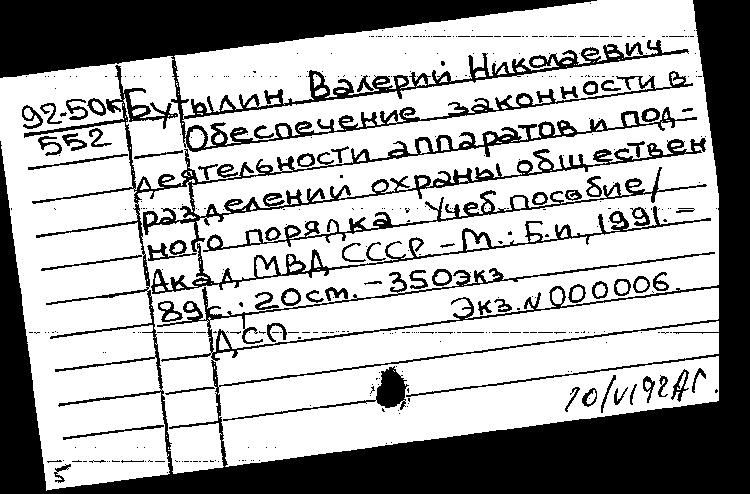 92-50к Бутылин, Валерий Николаевич
552 Обеспечение законности в
деятельности аппаратов и под=
разделений охраны обществен
ного порядка: Учеб. пособие/
Акад. МВД СССР. - М.: Б.и., 1991. -
89с.; 20см. - 350экз.
Экз. N 000006.
ДСП.
20/VI92
5